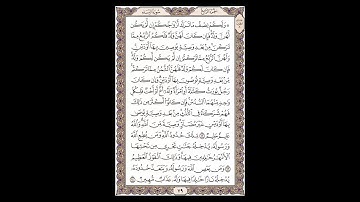 الجزء الرابع سورة النساء
۞ وَلَكُمْ نِصْفُ مَا تَرَكَ أَزْوَاجُكُمْ إِن لَّمْ يَكُن
لَّهُنَّ وَلَدٌ فَإِن كَانَ لَهُنَّ وَلَدٌ فَلَكُمُ الرُّبُعُ مِمَّا
تَرَكْنَ مِن بَعْدِ وَصِيَّةٍ يُوصِينَ بِهَا أَوْ دَيْنٍ
وَلَهُنَّ الرُّبُعُ مِمَّا تَرَكْتُمْ إِن لَّمْ يَكُن لَّكُمْ وَلَدٌ
فَإِن كَانَ لَكُمْ وَلَدٌ فَلَهُنَّ الثُّمُنُ مِمَّا تَرَكْتُم
مِّن بَعْدِ وَصِيَّةٍ تُوصُونَ بِهَا أَوْ دَيْنٍ وَإِن كَانَ
رَجُلٌ يُورَثُ كَلَالَةً أَوِ امْرَأَةٌ وَلَهُ أَخٌ أَوْ أُخْتٌ فَلِكُلِّ
وَاحِدٍ مِّنْهُمَا السُّدُسُ فَإِن كَانُوا أَكْثَرَ مِن ذَٰلِكَ
فَهُمْ شُرَكَاءُ فِي الثُّلُثِ مِن بَعْدِ وَصِيَّةٍ يُوصَىٰ
بِهَا أَوْ دَيْنٍ غَيْرَ مُضَارٍّ وَصِيَّةً مِّنَ اللَّهِ وَاللَّهُ
عَلِيمٌ حَلِيمٌ ١٢ تِلْكَ حُدُودُ اللَّهِ وَمَن يُطِعِ اللَّهَ
وَرَسُولَهُ يُدْخِلْهُ جَنَّاتٍ تَجْرِي مِن تَحْتِهَا
الْأَنْهَارُ خَالِدِينَ فِيهَا وَذَٰلِكَ الْفَوْزُ الْعَظِيمُ
١٣ وَمَن يَعْصِ اللَّهَ وَرَسُولَهُ وَيَتَعَدَّ حُدُودَهُ
يُدْخِلْهُ نَارًا خَالِدًا فِيهَا وَلَهُ عَذَابٌ مُّهِينٌ ١٤
٧٩